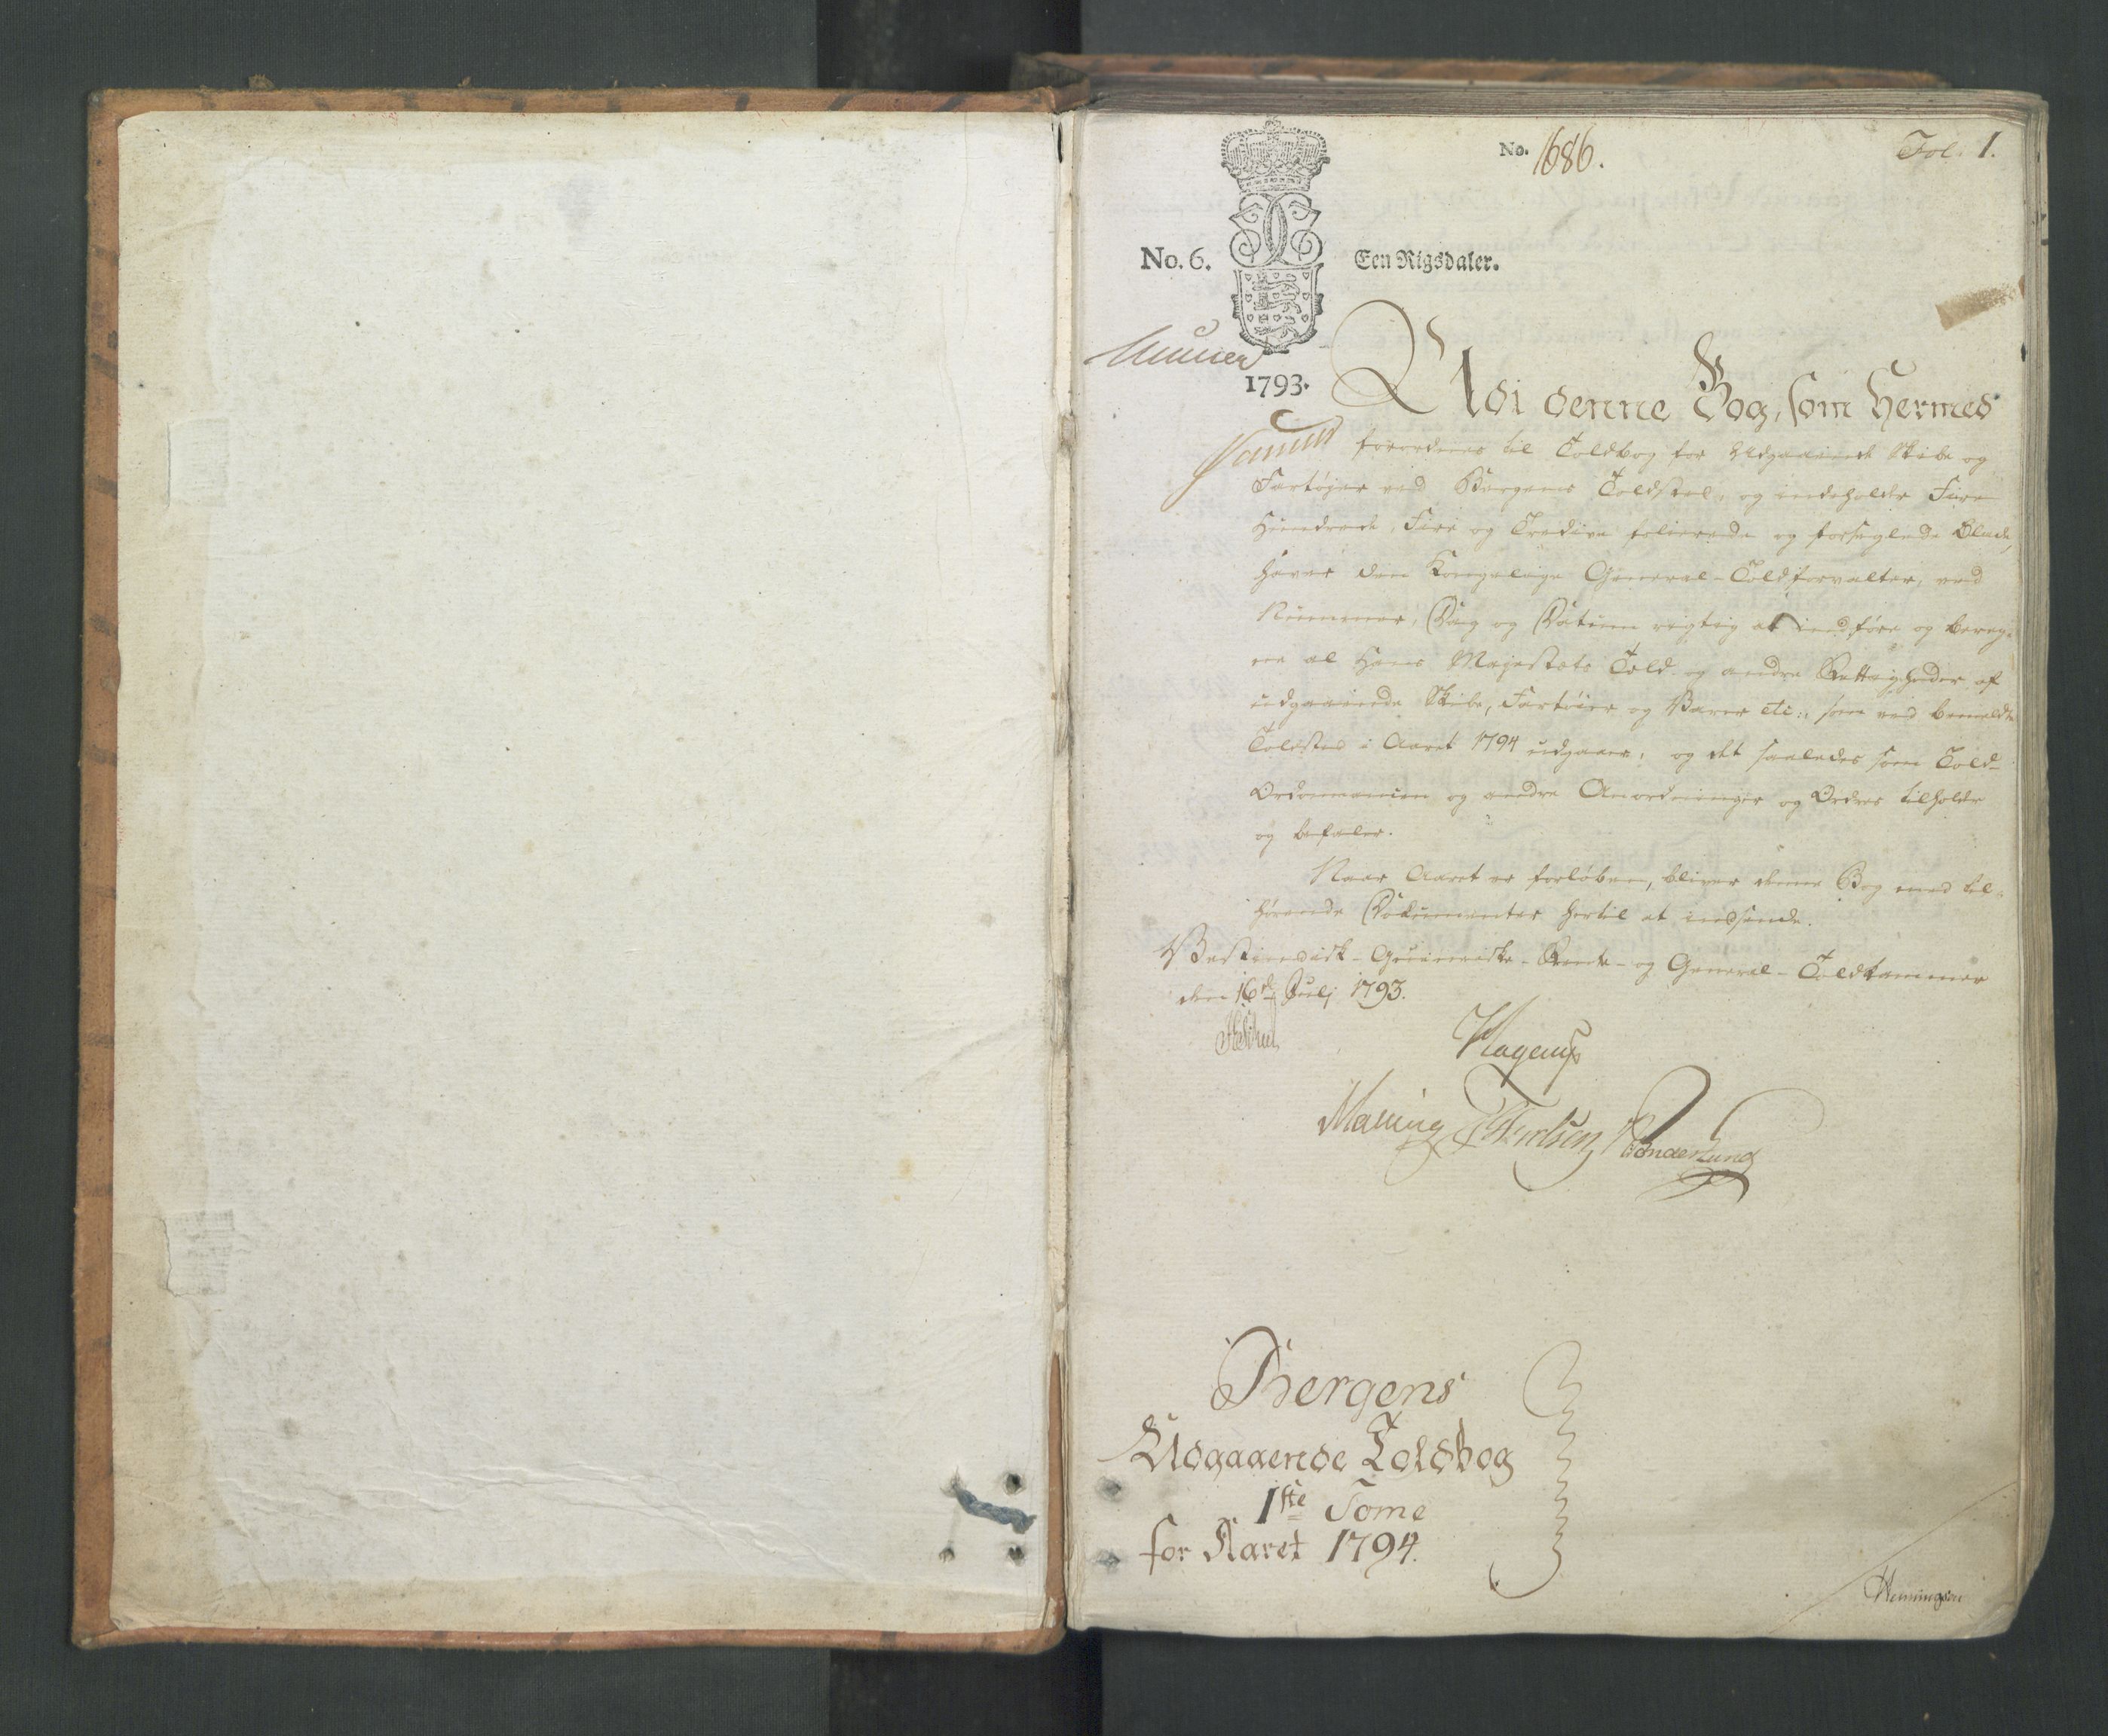 No. 1686.
Fol. 1.
No. 6.
Een Rigsdaler.
1793.
Udi denne Bog, som hermed
forordnes til Toldbog for Udgaaende Skibe og
Fartøjer ved Bergens Toldsted, og indeholder Fire
Hundrede, Fire og Tredive folierede og forseglede Blade,
haver den Kongelige General-Toldforvalter, ved
Nummer, Dag og Datum rigtig at indføre og bereg-
ne al Hans Majestæts Told- og andre Rettigheder af
udgaaende Skibe, Fartøier og Varer etc: som ved bemeldte
Toldsted i Aaret 1794 udgaaer, og det saaledes som Told-
Ordonnancen og andre Anordninger og Ordres tilholder
og befaler.
Naar Aaret er forløben, bliver denne Bog med til-
hørende Documenter hertil at indsende.
Vestindisk-Guineiske-Rente- og General-Toldkammer
den 16de Julj 1793.
Hagerup
Malling
Sønderlund
Bergens
Udgaaende Toldbog
1ste Tome
for Aaret 1794.
Hemmingsen